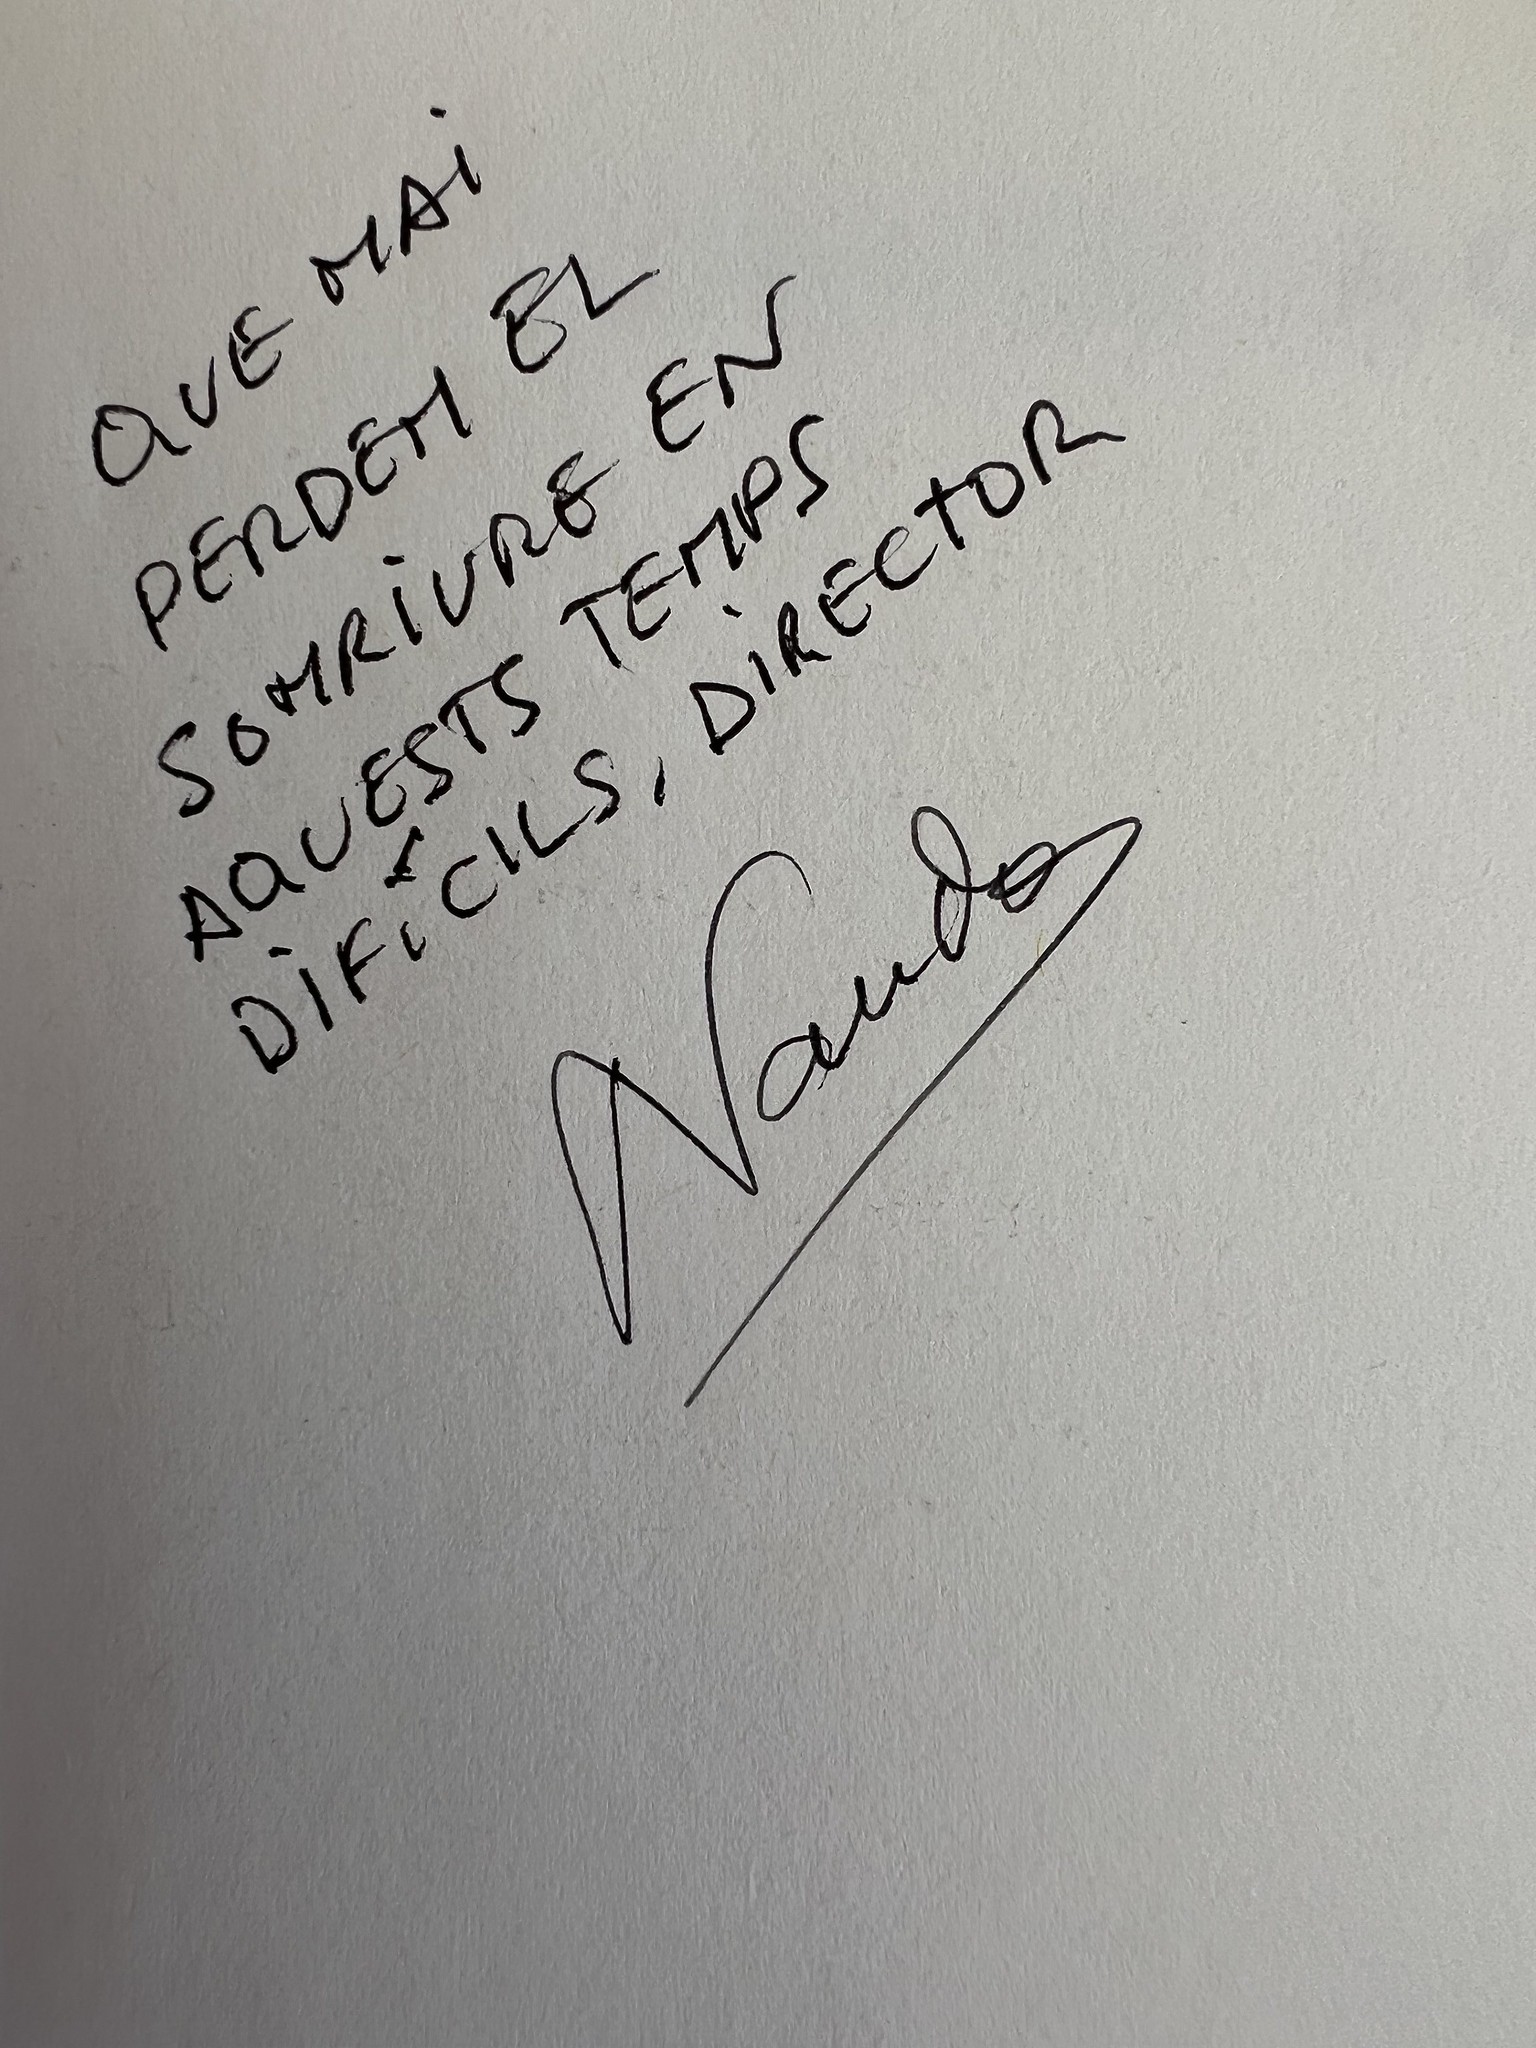 QUE MAi
PERDEM EL
SOMRiURE EN
AQUESTS TEMPS
DiFÍCILS, DiRECTOR
Nando